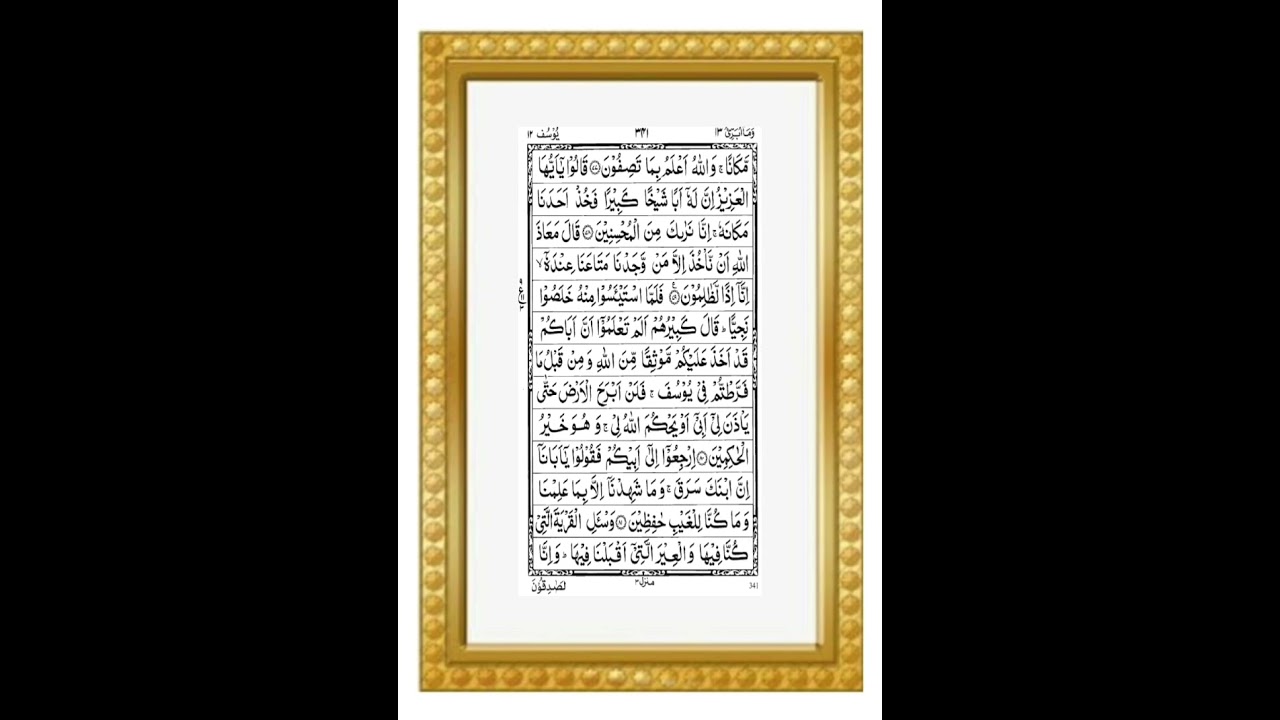 وَمَاۤ اُبَرِّئُ ١٣ ٣٤١ يُوْسُف ١٢
مَّكَانًا ۚ وَاللّٰهُ اَعْلَمُ بِمَا تَصِفُوْنَ ۝٧٧ قَالُوْا يٰۤاَيُّهَا
الْعَزِيْزُ اِنَّ لَهٗۤ اَبًا شَيْخًا كَبِيْرًا فَخُذْ اَحَدَنَا
مَكَانَهٗ ۚ اِنَّا نَرٰىكَ مِنَ الْمُحْسِنِيْنَ ۝٧٨ قَالَ مَعَاذَ
اللّٰهِ اَنْ نَّاْخُذَ اِلَّا مَنْ وَّجَدْنَا مَتَاعَنَا عِنْدَهٗۤ ۙ
اِنَّاۤ اِذًا لَّظٰلِمُوْنَ ۝٧٩ فَلَمَّا اسْتَيْئَسُوْا مِنْهُ خَلَصُوْا
نَجِيًّا ؕ قَالَ كَبِيْرُهُمْ اَلَمْ تَعْلَمُوْۤا اَنَّ اَبَاكُمْ
قَدْ اَخَذَ عَلَيْكُمْ مَّوْثِقًا مِّنَ اللّٰهِ وَمِنْ قَبْلُ مَا
فَرَّطْتُّمْ فِيْ يُوْسُفَ ۚ فَلَنْ اَبْرَحَ الْاَرْضَ حَتّٰى
يَاْذَنَ لِيْۤ اَبِيْۤ اَوْ يَحْكُمَ اللّٰهُ لِيْ ۚ وَهُوَ خَيْرُ
الْحٰكِمِيْنَ ۝٨٠ اِرْجِعُوْۤا اِلٰۤى اَبِيْكُمْ فَقُوْلُوْا يٰۤاَبَانَاۤ
اِنَّ ابْنَكَ سَرَقَ ۚ وَمَا شَهِدْنَاۤ اِلَّا بِمَا عَلِمْنَا
وَمَا كُنَّا لِلْغَيْبِ حٰفِظِيْنَ ۝٨١ وَسْـَٔلِ الْقَرْيَةَ الَّتِيْ
كُنَّا فِيْهَا وَالْعِيْرَ الَّتِيْۤ اَقْبَلْنَا فِيْهَا ؕ وَاِنَّا
لَصٰدِقُوْنَ منزل ٣ 341